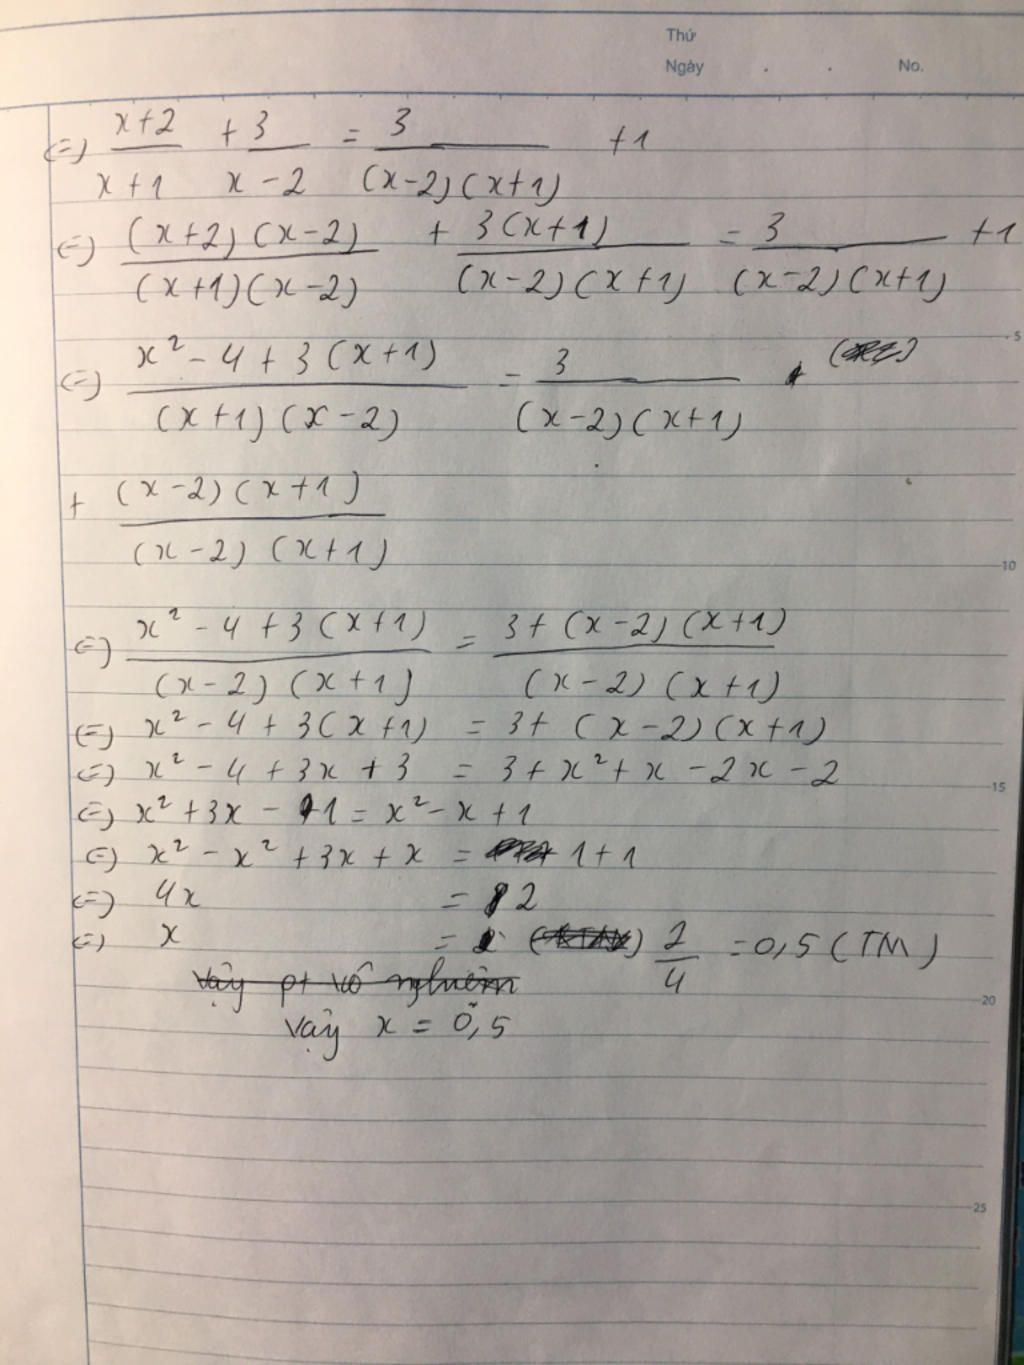 Thứ
Ngày . . No.
⇔ (x+2)/(x+1) + 3/(x-2) = 3/((x-2)(x+1)) +1
⇔ ((x+2)(x-2))/((x+1)(x-2)) + (3(x+1))/((x-2)(x+1)) = 3/((x-2)(x+1)) +1
⇔ (x²-4+3(x+1))/((x+1)(x-2)) = 3/((x-2)(x+1))
+ ((x-2)(x+1))/((x-2)(x+1))
⇔ (x²-4+3(x+1))/((x-2)(x+1)) = (3+(x-2)(x+1))/((x-2)(x+1))
⇔ x²-4+3(x+1) = 3+(x-2)(x+1)
⇔ x²-4+3x+3 = 3+x²+x-2x-2
⇔ x²+3x-1 = x²-x+1
⇔ x²-x²+3x+x = 1+1
⇔ 4x = 2
⇔ x = 2/4 = 0,5 (TM)
vậy pt vô nghiệm
vậy x = 0,5
5
10
15
20
25